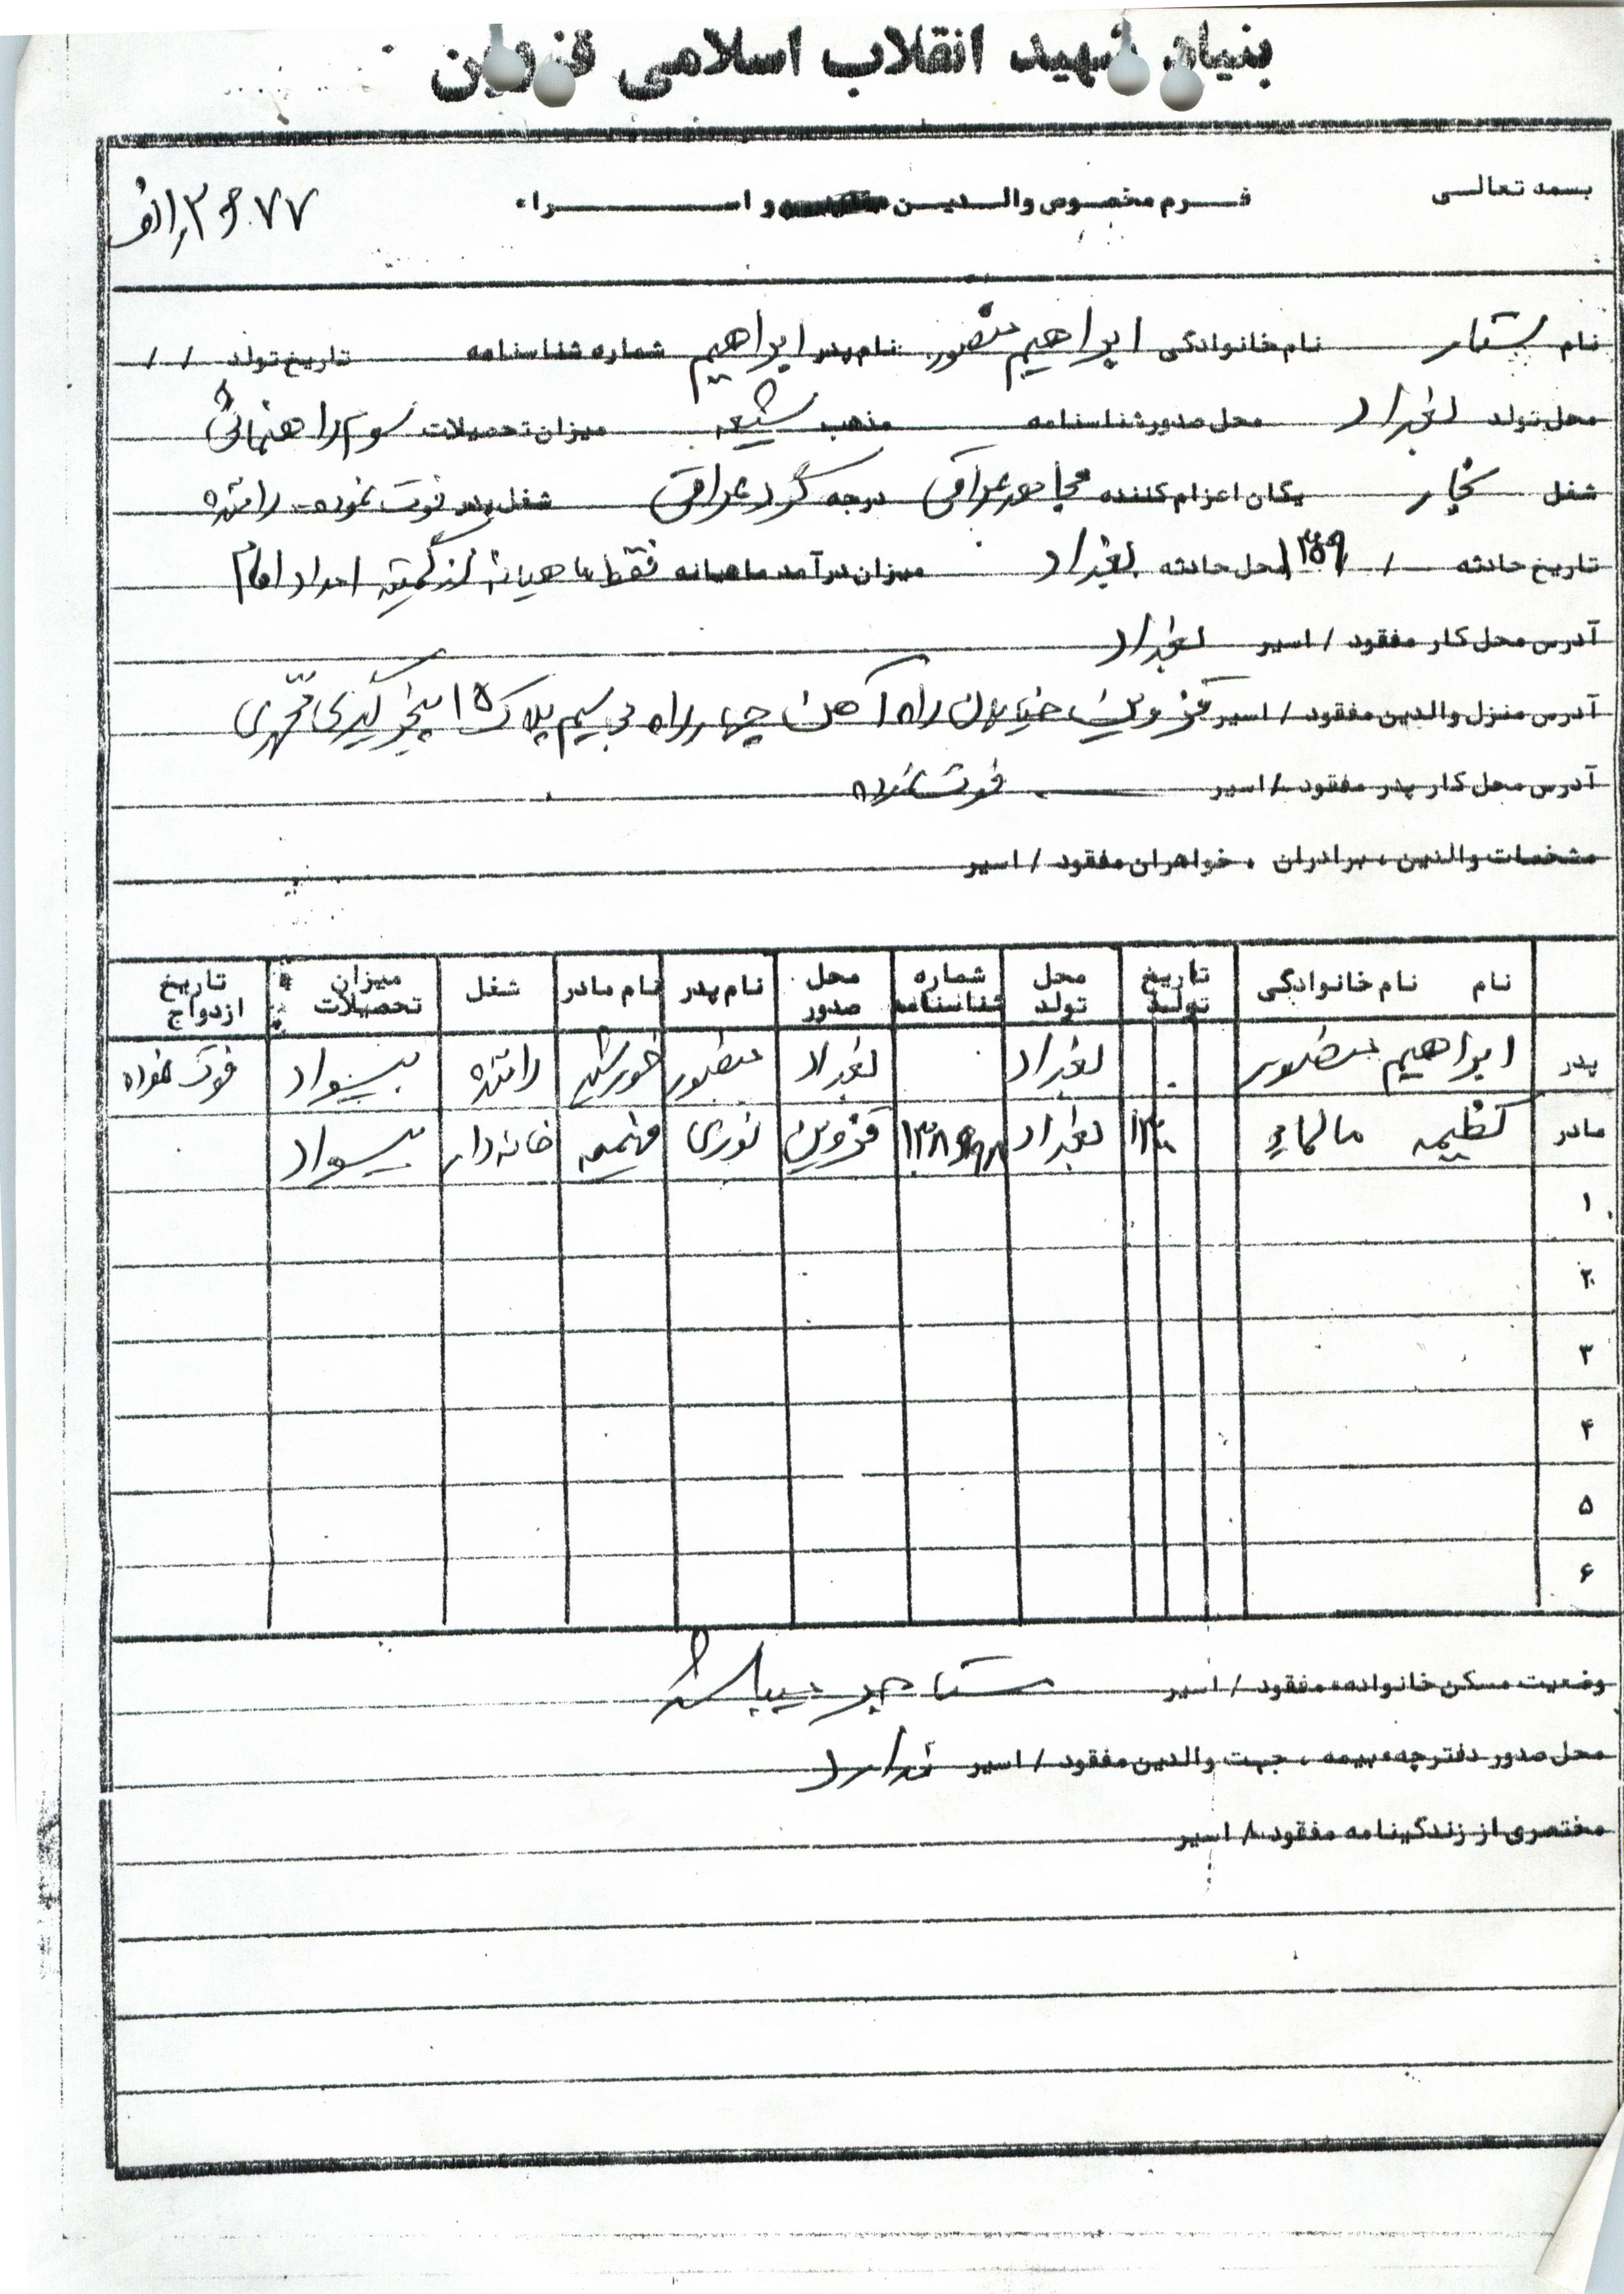 بنیاد شهید انقلاب اسلامی قزوین
بسمه تعالی
فرم مخصوص والدین و اسراء
نام ستار نام خانوادگی ابراهیم منصور نام پدر ابراهیم شماره شناسنامه تاریخ تولد / /
محل تولد بغداد محل صدور شناسنامه مذهب شیعه میزان تحصیلات سوم راهنمائی
شغل نجار یگان اعزام کننده مجاهد عراقی درجه کرد عراقی شغل پدر فوت نموده - راننده
تاریخ حادثه / ۱۳۵۹ محل حادثه بغداد میزان درآمد ماهیانه فقط ماهیانه از کمیته امداد امام
آدرس محل کار مفقود / اسیر بغداد
آدرس منزل والدین مفقود / اسیر قزوین خیابان راه آهن چهارراه بی سیم پلاک ۱۵ پنچرگیری
آدرس محل کار پدر مفقود / اسیر فوت نموده
مشخصات والدین ، برادران ، خواهران مفقود / اسیر
نام نام خانوادگی تاریخ تولد محل تولد شماره شناسنامه محل صدور نام پدر نام مادر شغل میزان تحصیلات تاریخ ازدواج
پدر ابراهیم منصور بغداد بغداد منصور خورشید راننده بیسواد فوت نموده
مادر کظیمه بغداد قزوین نوری فهیمه خانه دار بیسواد
۱
۲
۳
۴
۵
۶
وضعیت مسکن خانواده مفقود / اسیر مستاجر میباشد
محل صدور دفترچه بیمه ، جهت والدین مفقود / اسیر ندارد
مختصری از زندگینامه مفقود / اسیر